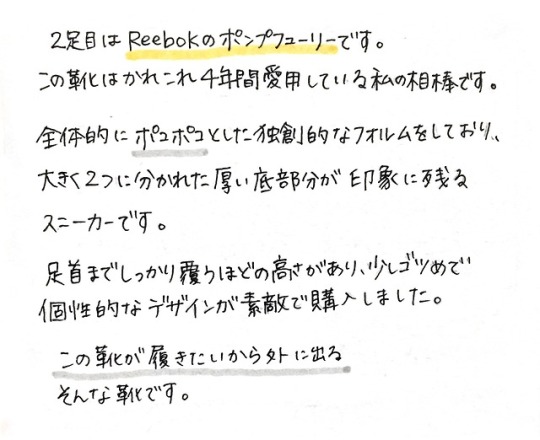 2足目はReebokのポンプフューリーです。
この靴はかれこれ4年間愛用している私の相棒です。
全体的にポコポコとした独創的なフォルムをしており、
大きく2つに分かれた厚い底部分が印象に残る
スニーカーです。
足首までしっかり覆うほどの高さがあり、少しゴツめで
個性的なデザインが素敵で購入しました。
この靴が履きたいから外に出る
そんな靴です。